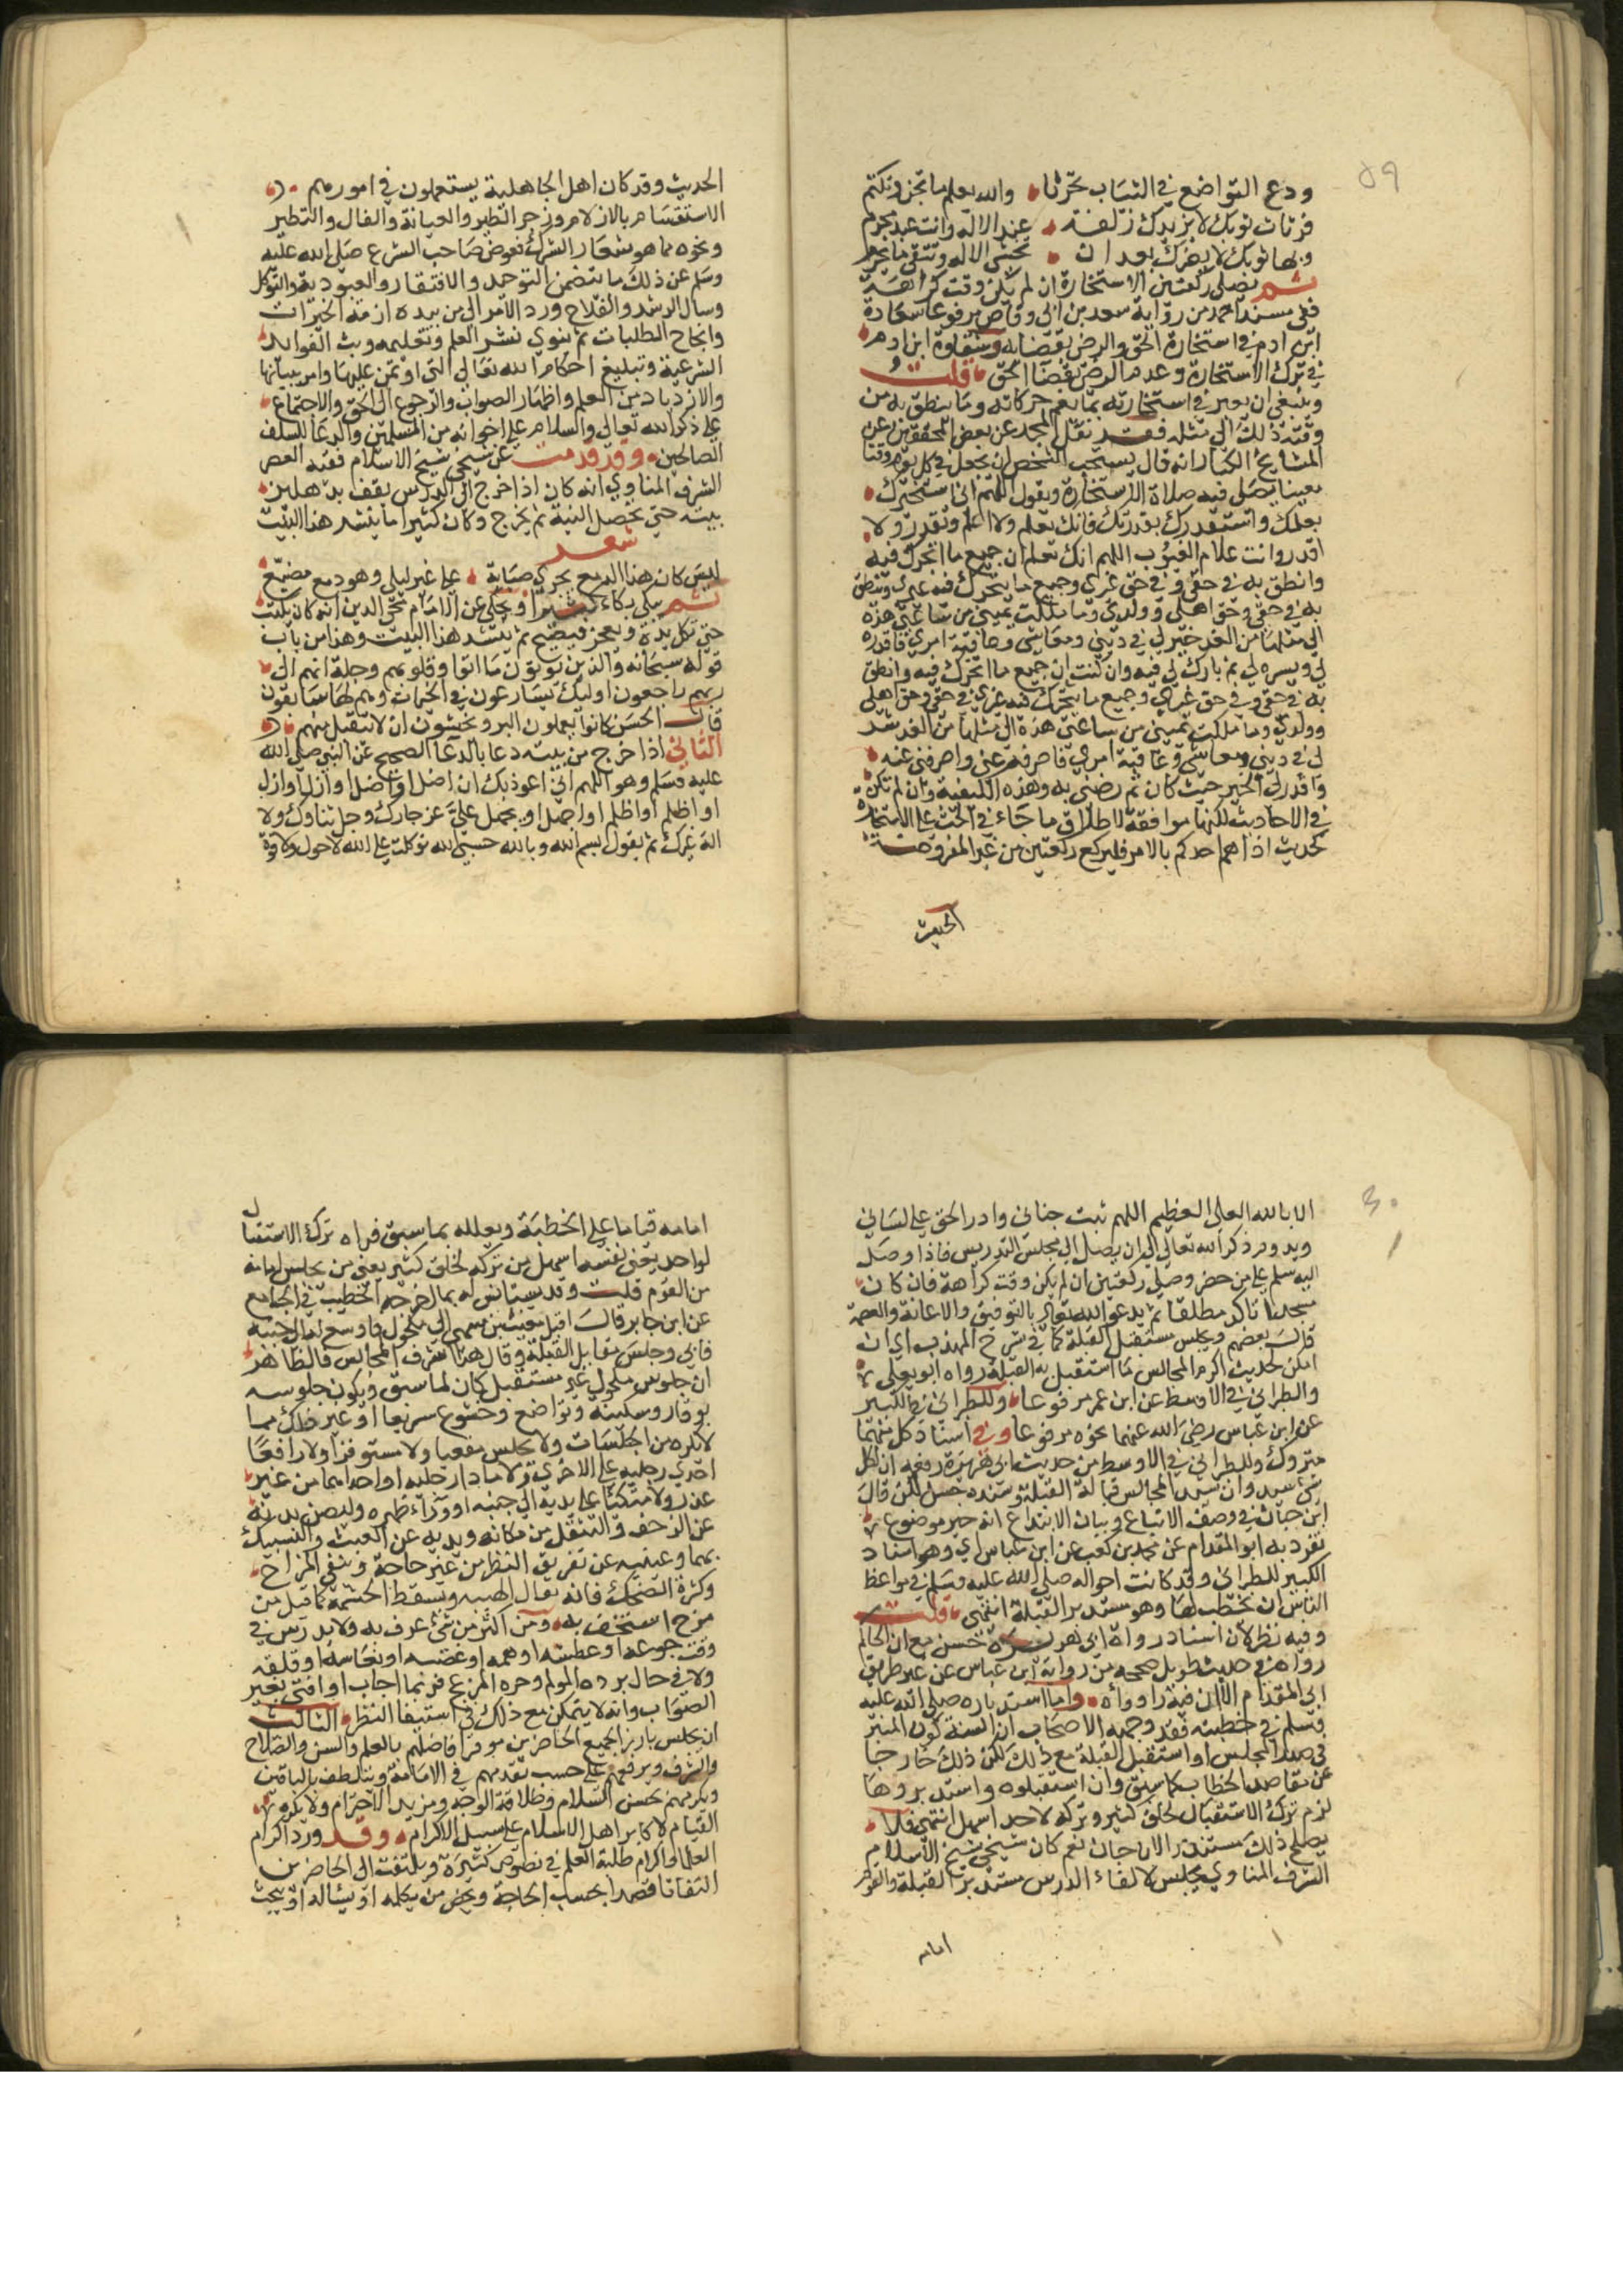 ٥٩
ودع التواضع في الثياب تحرثا والله يعلم ما تجن وتكتم
فرثاث ثوبك لا يزيدك زلفة عند الاله وانت عبد مجرم
وبهاثوبك لا يضرك بعد ان تخشى الاله وتتقي ما يحرم
ثم يصلي ركعتين الاستخارة ان لم يكن وقت كراهة
ففي مسند احمد من رواية سعد بن ابي وقاص مرفوعا سعادة
ابن ادم في استخارة الحق والرضى بقضايه وشقاوة ابن ادم
في ترك الاستخارة وعدم الرضى بقضا الحق قلت
وينبغي ان يعبر في استخارته بما يعم حركاته وما ينطق به من
وقته ذلك الى مثله فقد نقل المجد عن بعض المحققين عن
المشايخ الكبار انه قال يستحب للشخص ان يجعل في كل يوم وقتا
معينا يصلي فيه صلاة الاستخارة ويقول اللهم اني استخيرك
بعلمك واستقدرك بقدرتك فانك تعلم ولا اعلم وتقدر ولا
اقدر وانت علام الغيوب اللهم انك تعلم ان جميع ما اتحرك فيه
وانطق به في حقي وفي حق غيري وجميع ما يتحرك فيه غيري وينطق
به في حقي وحق اهلي وولدي وما ملكت يميني من ساعتي هذه
الى مثلها من الغد خير لي في ديني ومعاشي وعاقبة امري فاقدره
لي ويسره لي ثم بارك لي فيه وان كنت ان جميع ما اتحرك فيه وانطق
به في حقي وفي حق غيري وجميع ما يتحرك فيه غيري في حقي وحق اهلي
وولدي وما ملكت يميني من ساعتي هذه الى مثلها من الغد شر
لي في ديني ومعاشي وعاقبة امري فاصرفه عني واصرفني عنه
واقدر لي الخير حيث كان ثم رضني به وهذه الكيفية وان لم تكن
في الاحاديث لكنها موافقة لاطلاق ما جاء في الحث على الاستخارة
كحديث اذا هم احدكم بالامر فليركع ركعتين من غير المفروضة
الحديث
الحديث وقد كان اهل الجاهلية يستعملون في امورهم
الاستقسام بالازلام وزجر الطير والعيافة والفال والتطير
ونحوه مما هو شعار الشرك فعوض صاحب الشرع صلى الله عليه
وسلم عن ذلك ما يتضمن التوحد والافتقار والعبودية والتوكل
وسال الرشد والفلاح ورد الامر الى من بيده ازمة الخيرات
وانجاح الطلبات ثم ينوي نشر العلم وتعليمه وبث الفوايد
الشرعية وتبليغ احكام الله تعالى التي اوتمن عليها وامر ببيانها
والازدياد من العلم واظهار الصواب والرجوع الى الحق والاجتماع
على ذكر الله تعالى والسلام على اخوانه من المسلمين والدعا للسلف
الصالحين وقد قدمت عن شيخي شيخ الاسلام فقيه العصر
الشرف المناوي انه كان اذا خرج الى الدرس يقف بدهليز
بيته حتى يحصل النية ثم يخرج وكان كثيرا ما ينشد هذا البيت
شعر
ليس كان هذا الدمع يجري صبابة على غير ليلى وهو دمع مضيع
ثم يبكي بكاء كثيرا ويحكى عن الامام محي الدين انه كان يكتب
حتى تكل يده ويعجز فيضع ثم ينشد هذا البيت وهذا من باب
قوله سبحانه والذين يوتون ما اتوا وقلوبهم وجلة انهم الى
ربهم راجعون اوليك يسارعون في الخيرات وهم لها سابقون
قال الحسن كانوا يعملون البر ويخشون ان لا يتقبل منهم
الثاني اذا خرج من بيته دعا بالدعا الصحيح عن النبي صلى الله
عليه وسلم وهو اللهم اني اعوذ بك ان اضل او اضل او ازل او ازل
او اظلم او اظلم او اجهل او يجهل علي عز جارك وجل ثناوك ولا
اله غيرك ثم يقول بسم الله وبالله حسبي الله توكلت على الله لا حول ولا قوة
٦٠
الا بالله العلي العظيم اللهم ثبت جناني وادر الحق على لساني
ويدوم ذكر الله تعالى الى ان يصل الى مجلس التدريس فاذا وصل
اليه سلم على من حضر وصلى ركعتين ان لم يكن وقت كراهة فان كان
مسجدا تاكد مطلقا ثم يدعو الله تعالى بالتوفيق والاعانة والعصمة
قال بعضهم ويجلس مستقبل القبلة كما في شرح المهذب اي ان
امكن لحديث اكرم المجالس ما استقبل به القبلة رواه ابو يعلى
والطبراني في الاوسط عن ابن عمر مرفوعا وللطبراني في الكبير
عن ابن عباس رضي الله عنهما نحوه مرفوعا وفي اسناد كل منهما
متروك وللطبراني في الاوسط من حديث ابي هريرة رفعه ان لكل
شي سيد وان سيد المجالس قبالة القبلة وسنده حسن لكن قال
ابن حبان في وصف الاتباع وبيان الابتداع انه خبر موضوع
تفرد به ابو المقدام عن محمد بن كعب عن ابن عباس اي وهو اسناد
الكبير للطبراني وقد كانت احواله صلى الله عليه وسلم في مواعظ
الناس ان يخطب لها وهو مستدبر القبلة انتهى قلت
وفيه نظر لان اسناد رواة ابي هريرة حسن مع ان الحاكم
رواه في حديث طويل صححه من رواية ابن عباس عن غير طريق
ابي المقدام الا ان فيه راو واه واما استدباره صلى الله عليه
وسلم في خطبته فقد وجهه الاصحاب ان السنة كون المنبر
في صدر المجلس او استقبل القبلة مع ذلك لكن ذلك خارجا
عن مقاصد الخطاب كما سبق وان استقبلوه واستدبروها
لزم ترك الاستقبال لخلق كثير وتركه لاحد اسهل انتهى فلا
يصلح ذلك مستندا لابن حبان نعم كان شيخي شيخ الاسلام
الشرف المناوي يجلس لالقاء الدرس مستدبر القبلة والقوم
امامه
امامه قياما على الخطبة ويعلله بما سبق فراه ترك الاستقبال
لواحد يعني نفسه اسهل من تركه لخلق كثير يعني من يجلس امامه
من القوم قلت وقد يستانس له بما اخرجه الخطيب في الجامع
عن ابن جابر قال اقبل مغيث بن سمي الى مكحول فاوسع له الى جنبه
فابى وجلس مقابل القبلة وقال هذا اشرف المجالس فالظاهر
ان جلوس مكحول غير مستقبل كان لما سبق ويكون جلوسه
بوقار وسكينة وتواضع وخشوع متربعا او غير ذلك مما
لا يكره من الجلسات ولا يجلس مقعيا ولا مستوفزا ولا رافعا
احدى رجليه على الاخرى ولا مادا رجليه او احداهما من غير
عذر ولا متكيا على يديه الى جنبه او وراء ظهره وليصن بدنه
عن الزحف والتنقل من مكانه ويديه عن العبث والتشبيك
بهما وعينيه عن تفريق النظر من غير حاجة ويتقي المزاح
وكثرة الضحك فانه يقال الهيبه ويسقط الحشمة كما قيل من
مزح استخف به ومن اكثر من شي عرف به ولا يدرس في
وقت جوعه او عطشه او همه او غضبه او نعاسه او قلقه
ولا في حال برده المولم وحره المزعج فربما اجاب او افتى بغير
الصواب ولانه لا يتمكن مع ذلك في استيفا النظر الثالث
ان يجلس بارزا لجميع الحاضرين موقرا فاضلهم بالعلم والسن والصلاح
والشرف ويرفعهم على حسب تقديمهم في الامامة ويتلطف بالباقين
ويكرمهم بحسن السلام وطلاقة الوجه ومزيد الاحترام ولا يكره
القيام لاكابر اهل الاسلام على سبيل الاكرام وقد ورد اكرام
العلما واكرام طلبة العلم في نصوص كثيرة ويلتفت الى الحاضرين
التفاتا قصدا بحسب الحاجة ويخص من يكلمه او يساله او يبحث